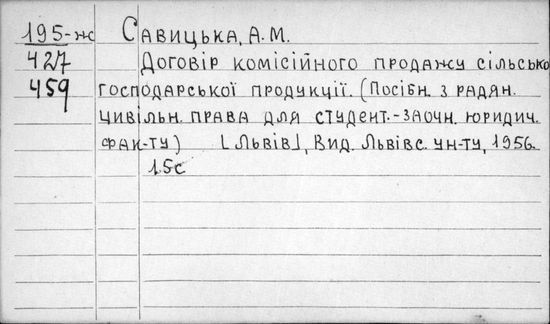 195-ж САВИЦЬКА, А. М.
427 ДОГОВІР КОМІСІЙНОГО ПРОДАЖУ СІЛЬСЬКО
459 ГОСПОДАРСЬКОЇ ПРОДУКЦІЇ. (ПОСІБН. З РАДЯН.
ЦИВІЛЬН. ПРАВА ДЛЯ СТУДЕНТ.-ЗАОЧН. ЮРИДИЧ.
ФАК-ТУ) [ЛЬВІВ], ВИД. ЛЬВІВС. УН-ТУ, 1956.
15с